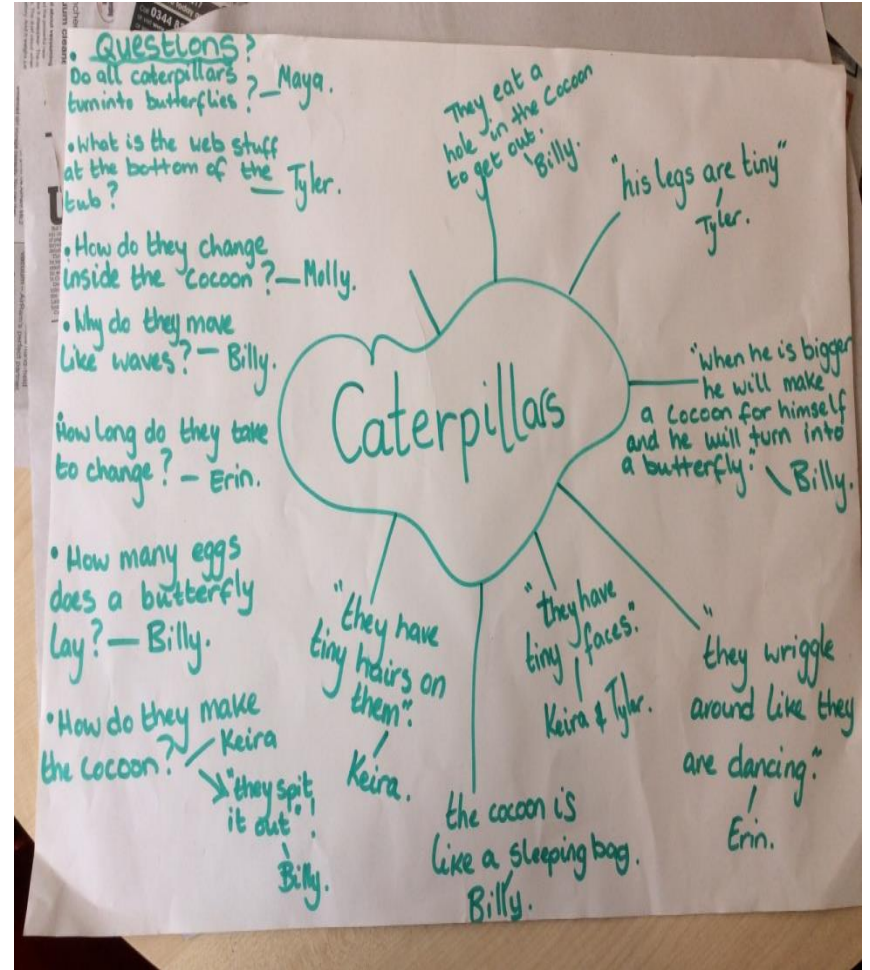 0344 8
• Questions?
Do all caterpillars
turn into butterflies? – Maya.
• What is the web stuff
at the bottom of the
tub? – Tyler.
• How do they change
inside the cocoon? – Molly.
• Why do they move
like waves? – Billy.
How long do they take
to change? – Erin.
• How many eggs
does a butterfly
lay? – Billy.
• How do they make
the cocoon? Keira
"they spit
it out"!
Billy.
Caterpillars
They eat a
hole in the cocoon
to get out.
Billy.
"his legs are tiny"
Tyler.
"when he is bigger
he will make
a cocoon for himself
and he will turn into
a butterfly."
Billy.
"they wriggle
around like they
are dancing."
Erin.
"they have
tiny faces."
Keira & Tyler.
the cocoon is
like a sleeping bag.
Billy.
"they have
tiny hairs on
them".
Keira.